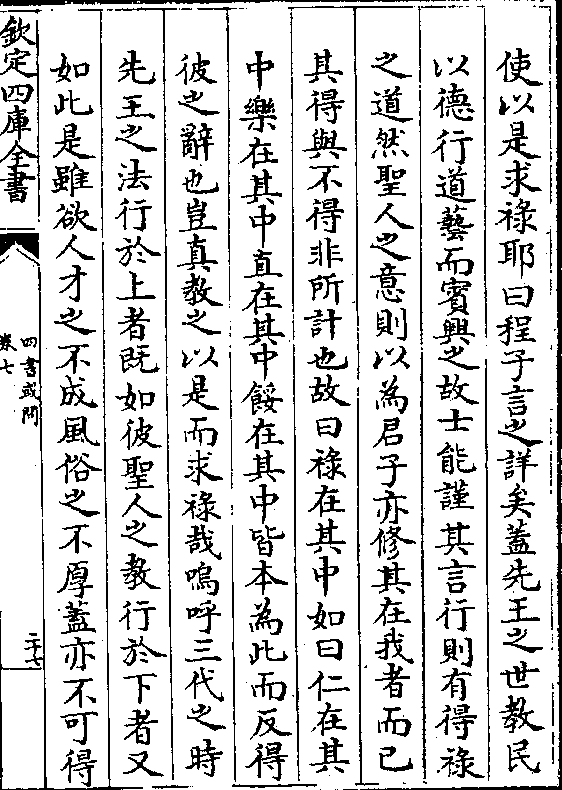 使以是求祿耶曰程子言之詳矣蓋先王之世教民
以德行道藝而賓興之故士能謹其言行則有得祿
之道然聖人之意則以為君子亦修其在我者而已
其得與不得非所計也故曰祿在其中如曰仁在其
中樂在其中直在其中餒在其中皆本為此而反得
彼之辭也豈真教之以是而求祿哉嗚呼三代之時
先王之法行於上者既如彼聖人之教行於下者又
如此是雖欲人才之不成風俗之不厚蓋亦不可得
欽定四庫全書
四書或問
卷七
二十七